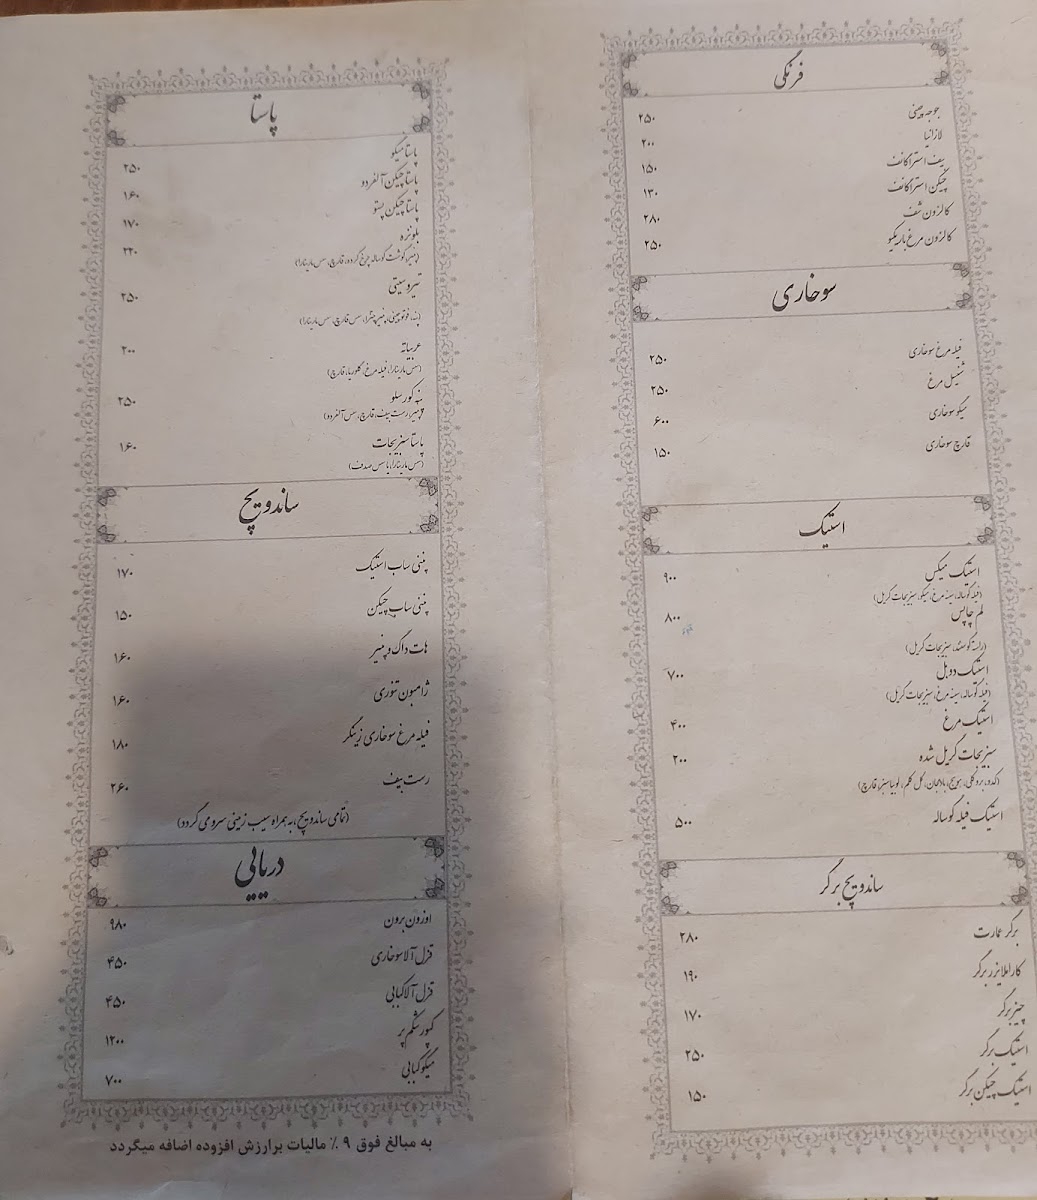 فرنگی
جوجه چینی ۲۵۰
لازانیا ۲۰۰
بیف استراگانف ۱۵۰
چیکن استراگانف ۱۳۰
کالزون شف ۲۸۰
کالزون مرغ باربیکیو ۲۵۰
سوخاری
فیله مرغ سوخاری ۲۵۰
شنیسل مرغ ۲۵۰
میگو سوخاری ۶۰۰
قارچ سوخاری ۱۵۰
استیک
استیک میکس ۹۰۰
(فیله گوساله، سینه مرغ، میگو، سبزیجات گریل)
لم چاپس ۸۰۰
(راسته گوسفند، سبزیجات گریل)
استیک دوبل ۷۰۰
(فیله گوساله، سینه مرغ، سبزیجات گریل)
استیک مرغ ۴۰۰
سبزیجات گریل شده ۲۰۰
(کدو، بروکلی، هویج، بادمجان، گل کلم، لوبیا سبز، قارچ)
استیک فیله گوساله ۵۰۰
ساندویچ برگر
برگر عمارت ۲۸۰
کاراملایزر برگر ۱۹۰
چیزبرگر ۱۷۰
استیک برگر ۲۵۰
استیک چیکن برگر ۱۵۰
پاستا
پاستا میگو ۲۵۰
پاستا چیکن آلفردو ۱۶۰
پاستا چیکن پستو ۱۷۰
بلونزه ۲۲۰
(پنیر، گوشت گوساله چرخ کرده، قارچ، سس مارینارا)
تیروسیتی ۲۵۰
(پنه، فوتوچینی، پنیر پیتزا، سس قارچ، سس مارینارا)
عربیاته ۲۰۰
(سس مارینارا، فیله مرغ، گلوریا، قارچ)
پنه کورسلو ۲۵۰
(پنیر، رست بیف، قارچ، سس آلفردو)
پاستا سبزیجات ۱۶۰
(سس مارینارا، یا سس صدف)
ساندویچ
پنینی ساب استیک ۱۷۰
پنینی ساب چیکن ۱۵۰
هات داگ و پنیر ۱۶۰
ژامبون تنوری ۱۶۰
فیله مرغ سوخاری زینگر ۱۸۰
رست بیف ۲۶۰
(تمامی ساندویچ، به همراه سیب زمینی سرو می گردد)
دریایی
اوزون برون ۹۸۰
قزل آلا سوخاری ۴۵۰
قزل آلا کبابی ۴۵۰
کپور شکم پر ۱۲۰۰
میگو کبابی ۷۰۰
به مبالغ فوق ۹ ٪ مالیات برارزش افزوده اضافه میگردد